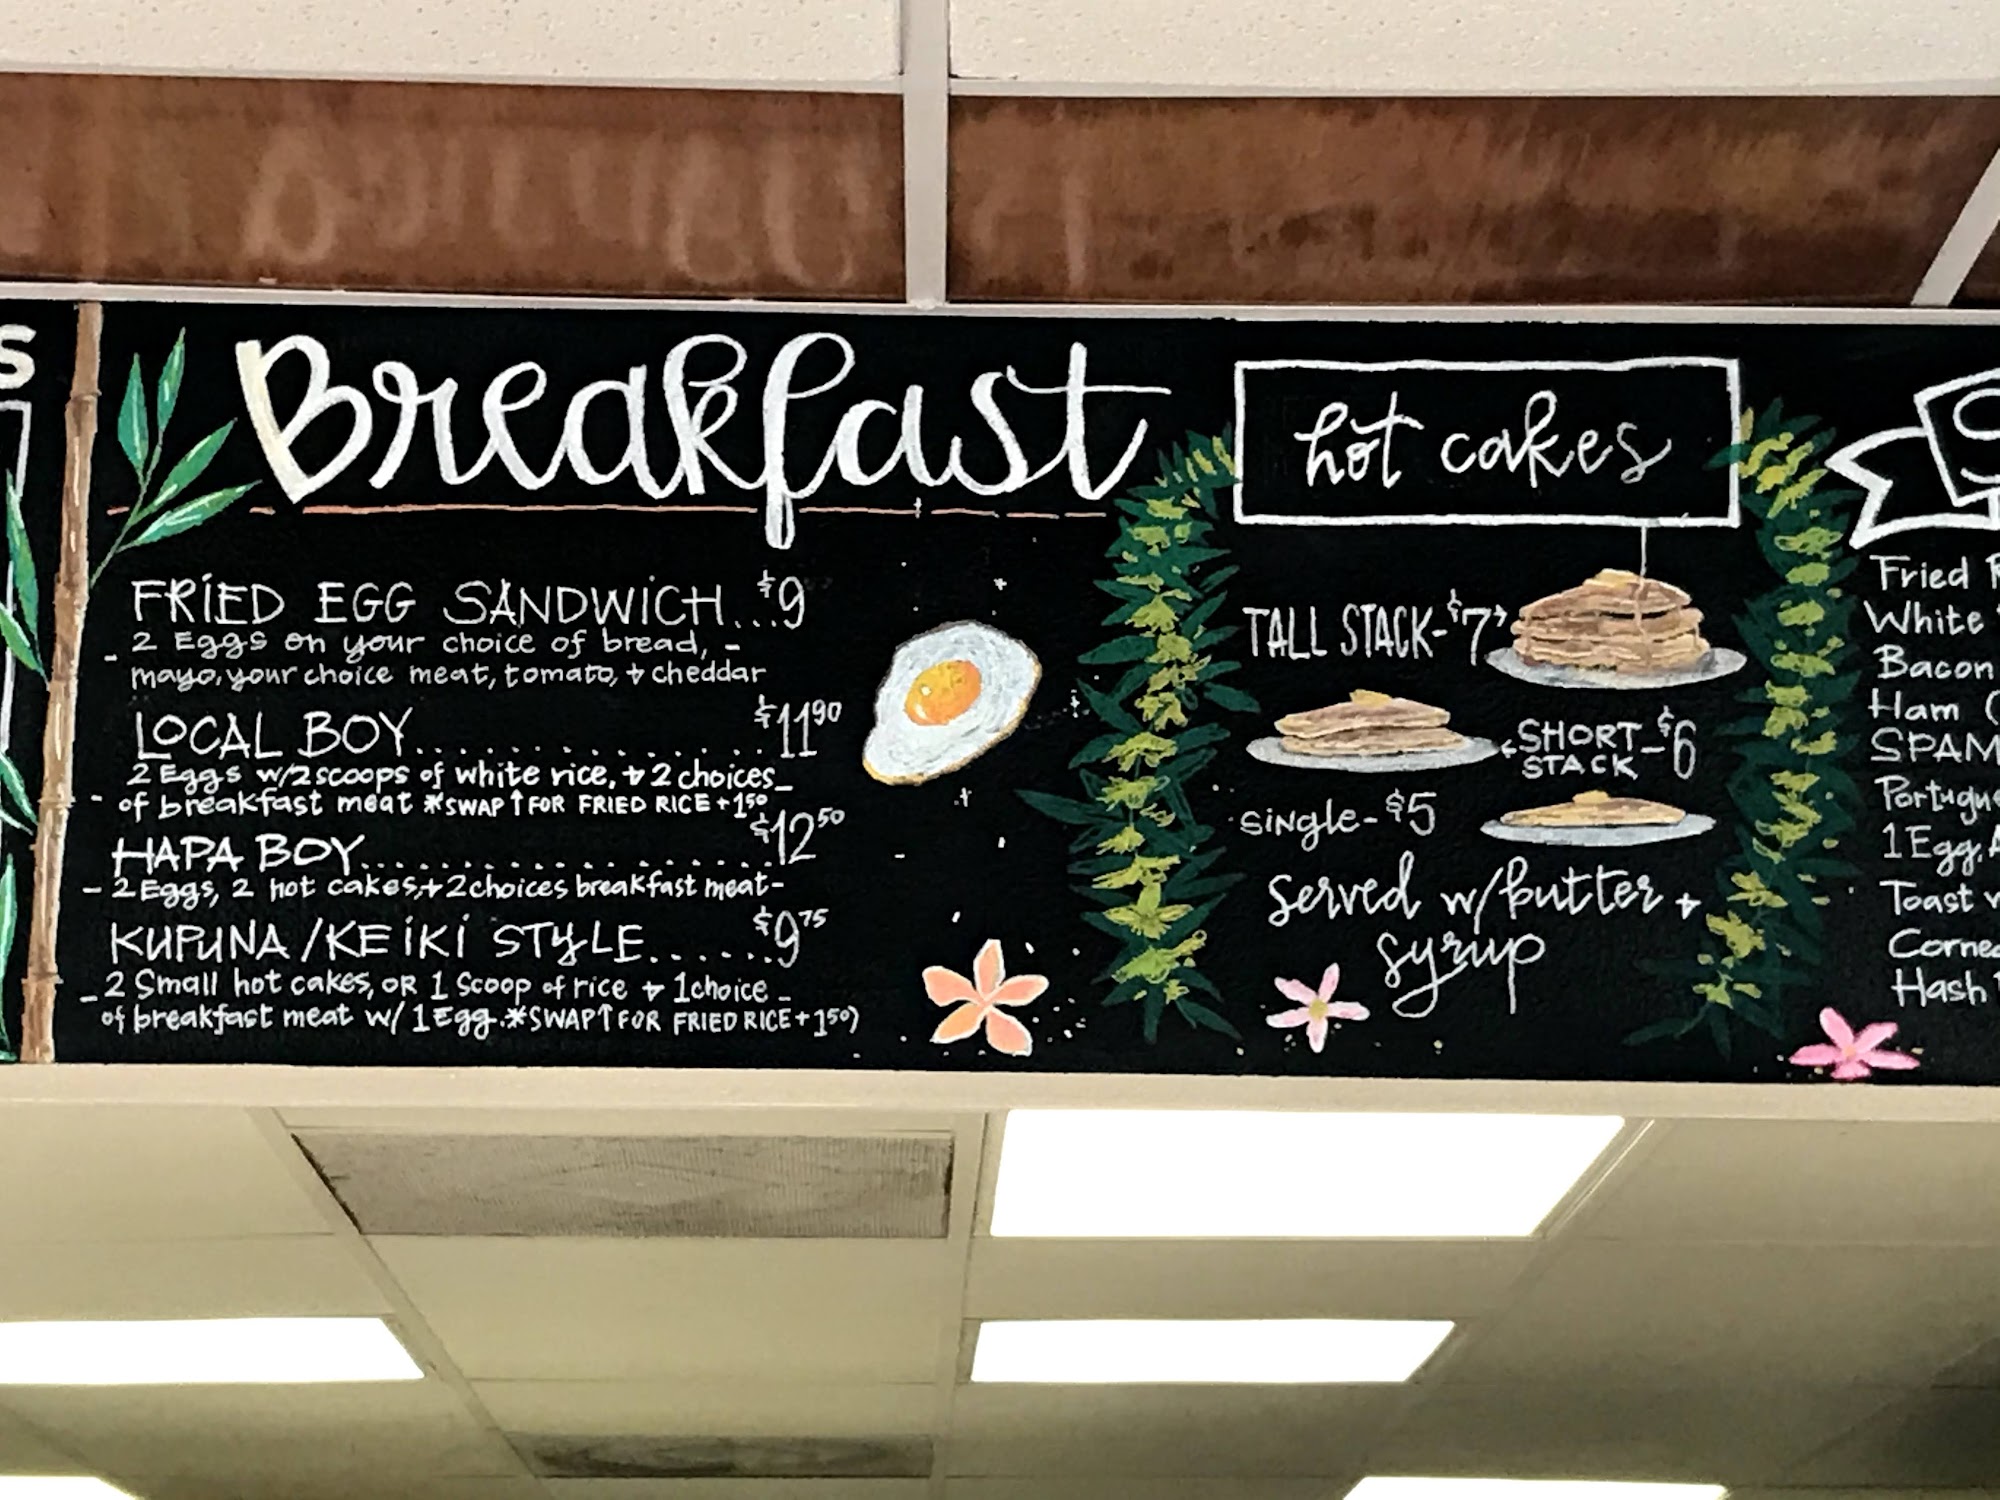 S
Breakfast
FRIED EGG SANDWICH...$9
- 2 Eggs on your choice of bread, -
mayo, your choice meat, tomato, + cheddar
LOCAL BOY..............$11.90
2 Eggs w/2 scoops of white rice, + 2 choices -
- of breakfast meat *SWAP↑FOR FRIED RICE + 1.50
HAPA BOY...................$12.50
- 2 Eggs, 2 hot cakes, + 2 choices breakfast meat -
KUPUNA/KEIKI STYLE......$9.75
- 2 Small hot cakes, OR 1 Scoop of rice + 1 choice -
of breakfast meat w/ 1 Egg. *SWAP↑FOR FRIED RICE + 1.50)
hot cakes
TALL STACK-$7
SHORT STACK-$6
SiNgle-$5
Served w/butter +
syrup
Fried
White
Bacon
Ham (
SPAM
1 Egg,
Toast
Hash